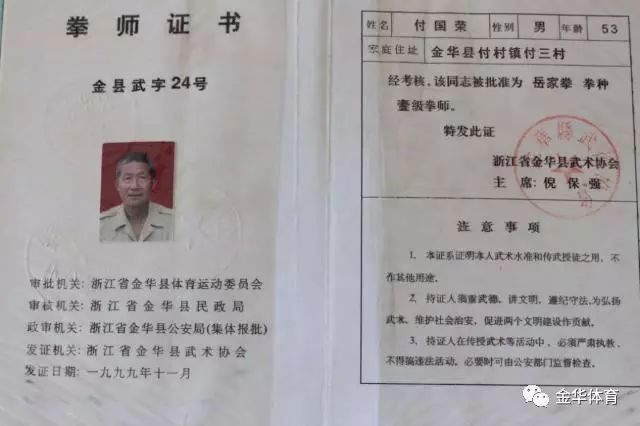 拳师证书
金县武字24号
审批机关: 浙江省金华县体育运动委员会
审核机关: 浙江省金华县民政局
政审机关: 浙江省金华县公安局(集体报批)
发证机关: 浙江省金华县武术协会
发证日期: 一九九九年十一月
姓名 付国荣 性别 男 年龄 53
家庭住址 金华县付村镇付三村
经考核,该同志被批准为 岳家拳 拳种
壹级拳师。
特发此证
浙江省金华县武术协会
主席:倪保强
注意事项
1、本证系证明本人武术水准和传武授徒之用,不
作其他用途。
2、持证人须重武德,讲文明,遵纪守法,为弘扬
武术,维护社会治安,促进两个文明建设作贡献。
3、持证人在传授武术等活动中,必须严肃执教,
不得搞违法活动。必要时可由公安部门监督检查。
金华体育